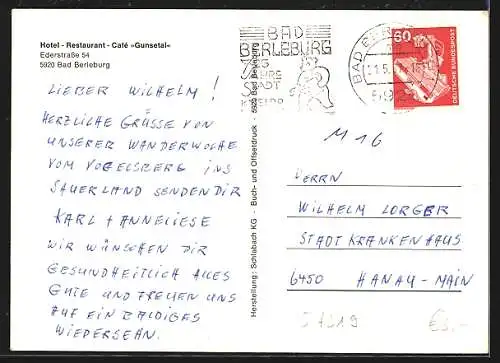 Hotel - Restaurant - Café »Gunsetal«
Ederstraße 54
5920 Bad Berleburg
LIEBER WILHELM!
HERZLICHE GRÜSSE VON
UNSERER WANDERWOCHE
VOM VOGELSBERG INS
SAUERLAND SENDEN DIR
KARL + ANNELIESE
WIR WÜNSCHEN DIR
GESUNDHEITLICH ALLES
GUTE UND FREUEN UNS
AUF EIN BALDIGES
WIEDERSEHN.
Herstellung: Schlabach KG - Buch- und Offsetdruck - 5920 Bad Berleburg
BAD
BERLEBURG
STADT
BAD BER
60
DEUTSCHE BUNDESPOST
M 16
HERRN
WILHELM LORGER
STADTKRANKENHAUS
6450 HANAU-MAIN